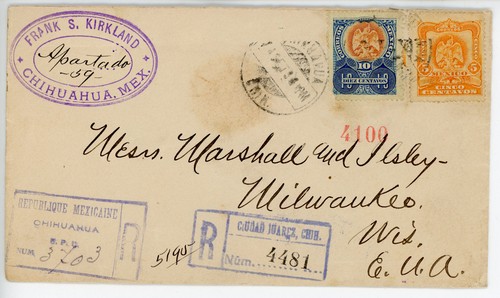 FRANK S. KIRKLAND
Apartado
-59-
CHIHUAHUA, MEX.
CHIHUAHUA
CORREOS
MEXICO
10 10
DIEZ CENTAVOS
MEXICO
5 5
CINCO
CENTAVOS
4100
Messrs. Marshall and Ilsley-
Milwaukee.
Wis.
E.U.A.
REPUBLIQUE MEXICAINE
CHIHUAHUA
R
NUM. 3703
5195
R
CIUDAD JUAREZ, CHIH.
Núm. 4481